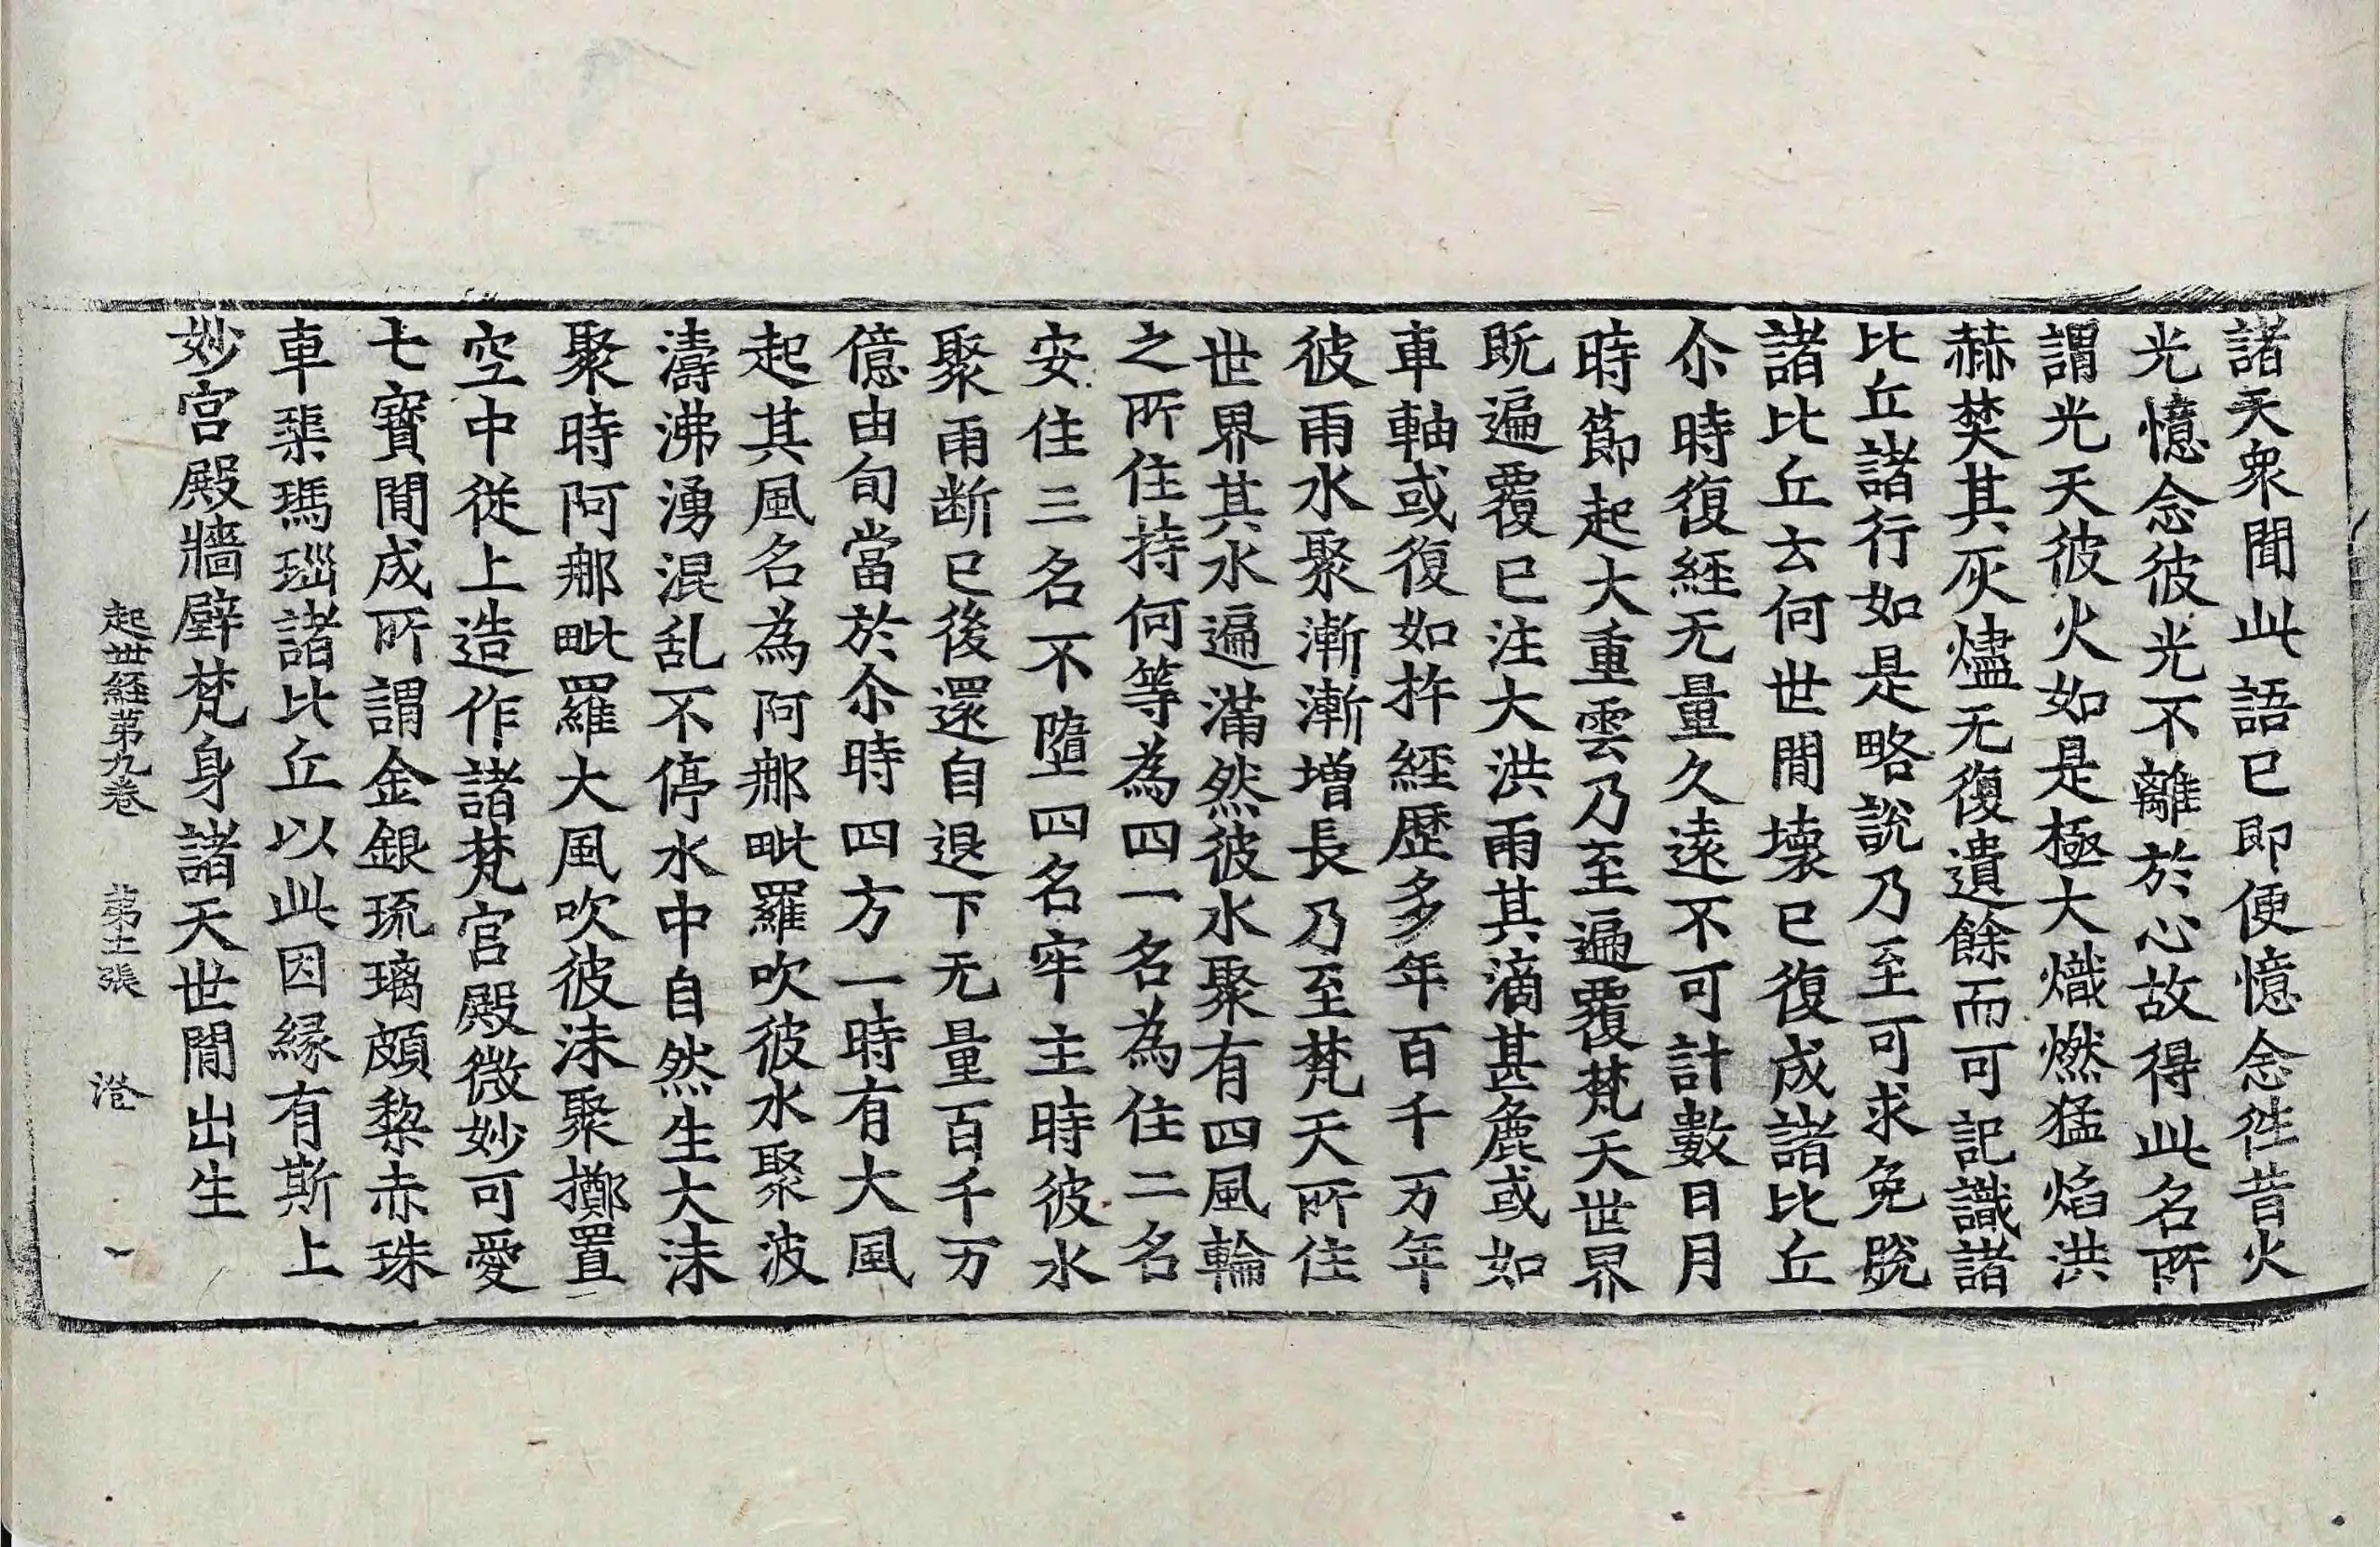 諸天衆聞此語已即便憶念徃昔火
光憶念彼光不離於心故得此名所
謂光天彼火如是極大熾燃猛焰洪
赫焚其灰燼无復遺餘而可記識諸
比丘諸行如是略說乃至可求免脫
諸比丘云何世間壞已復成諸比丘
尒時復經无量久遠不可計數日月
時節起大重雲乃至遍覆梵天世界
既遍覆已注大洪雨其滴甚麁或如
車軸或復如杵經歷多年百千万年
彼雨水聚漸漸增長乃至梵天所住
世界其水遍滿然彼水聚有四風輪
之所住持何等為四一名為住二名
安住三名不墮四名牢主時彼水
聚雨断已後還自退下无量百千万
億由旬當於尒時四方一時有大風
起其風名為阿那毗羅吹彼水聚波
濤沸湧混乱不停水中自然生大沫
聚時阿那毗羅大風吹彼沫聚擲置
空中從上造作諸梵宮殿微妙可愛
七寶間成所謂金銀琉璃頗梨赤珠
車𤦲瑪瑙諸比丘以此因緣有斯上
妙宮殿牆壁梵身諸天世間出生
起世經第九卷 第十一張 澄